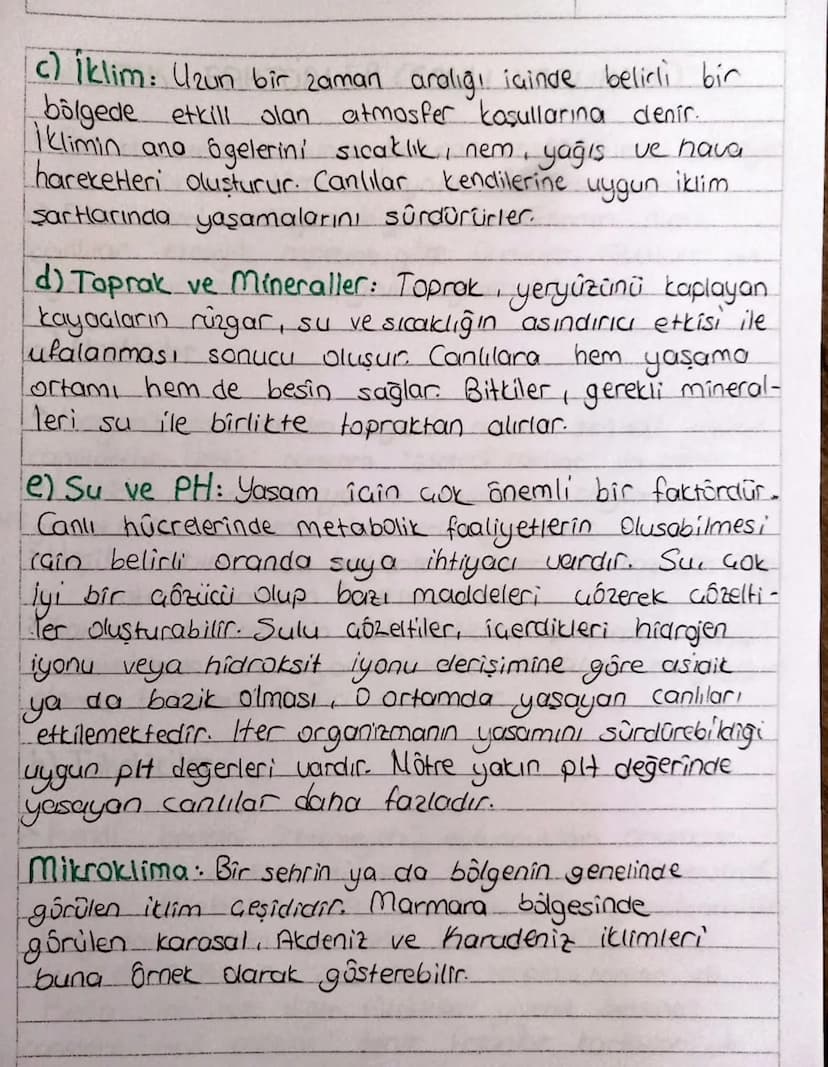 c) İklim: Uzun bir zaman aralığı içinde belirli bir
bölgede etkili olan atmosfer koşullarına denir.
İklimin ana ögelerini sıcaklık, nem, yağış ve hava
hareketleri oluşturur. Canlılar kendilerine uygun iklim
şartlarında yaşamalarını sürdürürler.
d) Toprak ve Mineraller: Toprak, yeryüzünü kaplayan
kayaçların rüzgar, su ve sıcaklığın aşındırıcı etkisi ile
ufalanması sonucu oluşur. Canlılara hem yaşama
ortamı hem de besin sağlar. Bitkiler, gerekli mineral-
leri su ile birlikte topraktan alırlar.
e) Su ve PH: Yaşam için çok önemli bir faktördür.
Canlı hücrelerinde metabolik faaliyetlerin oluşabilmesi
için belirli oranda suya ihtiyacı vardır. Su, çok
iyi bir çözücü olup bazı maddeleri çözerek çözelti-
ler oluşturabilir. Sulu çözeltiler, içerdikleri hidrojen
iyonu veya hidroksit iyonu derişimine göre asidik
ya da bazik olması, o ortamda yaşayan canlıları
etkilemektedir. Her organizmanın yaşamını sürdürebildiği
uygun pH değerleri vardır. Nötre yakın pH değerinde
yaşayan canlılar daha fazladır.
Mikroklima: Bir şehrin ya da bölgenin genelinde
görülen iklim çeşididir. Marmara bölgesinde
görülen karasal, Akdeniz ve Karadeniz iklimleri
buna örnek olarak gösterebilir.